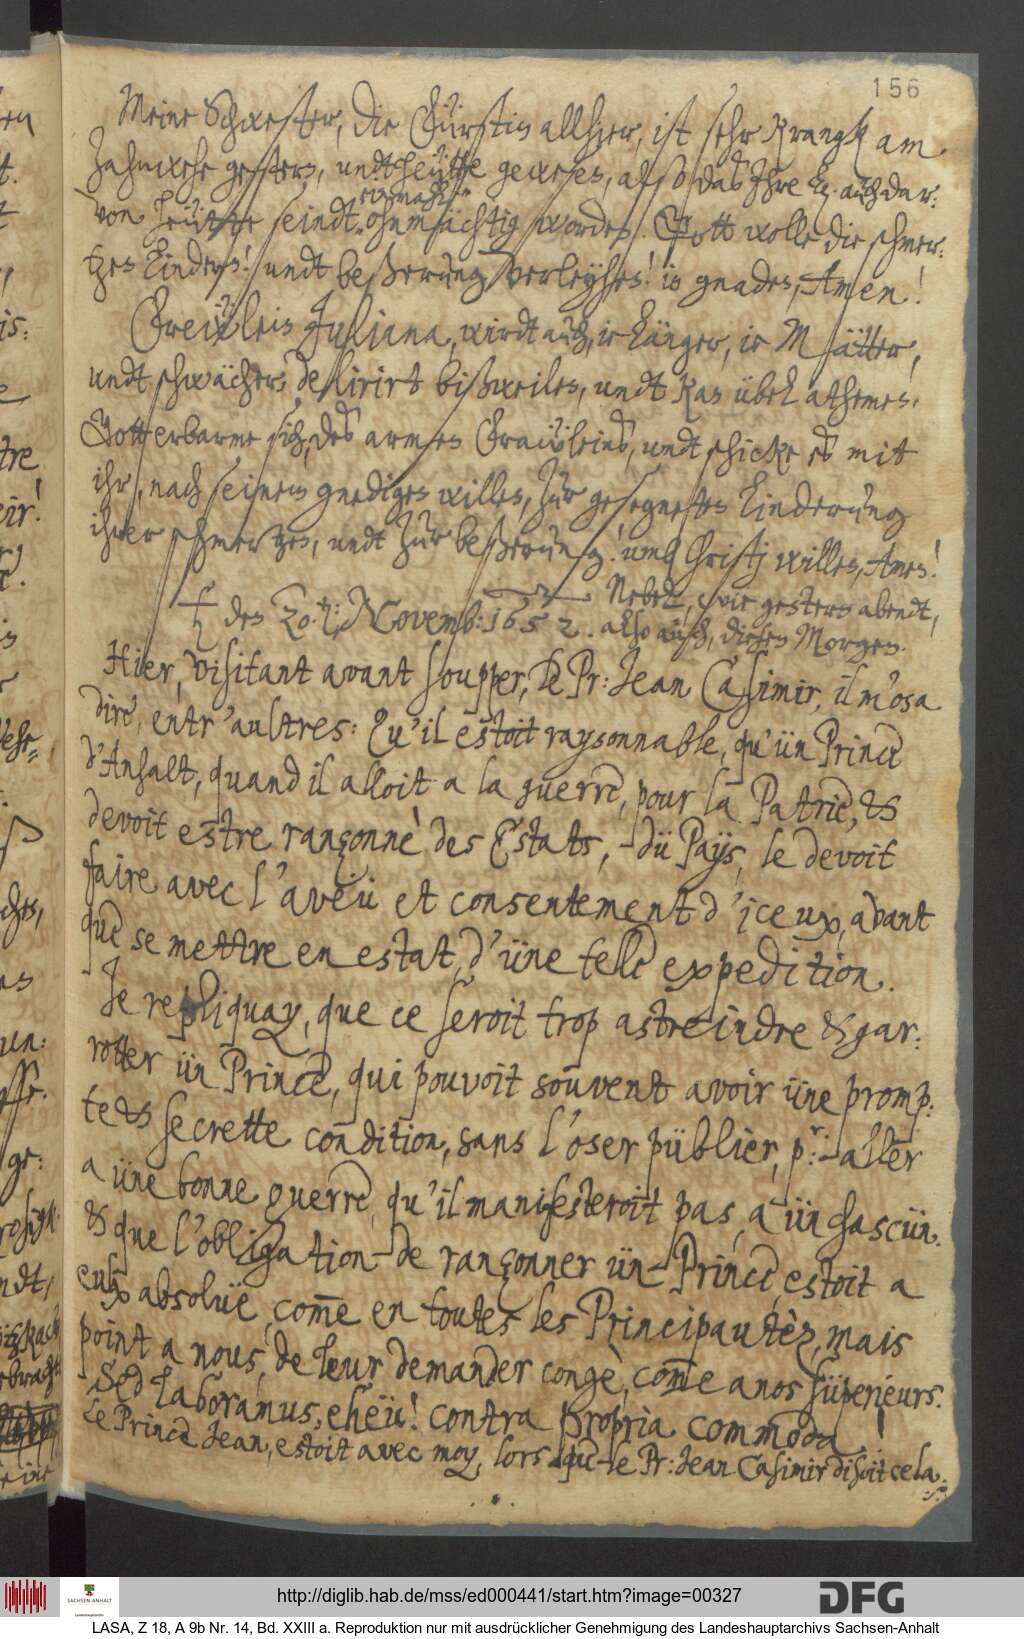 156
Meine Schwester, die Fürstin allhier, ist sehr krangk am
Zahnwehe gestern, undt heütte gewesen, also das Ihre L. auch dar:
von heütte seindt einmahl ohnmächtig worden. Gott wolle die schmer:
tzen lindern! undt beßerung verleyhen! in gnaden, Amen!
Freülein Juliana, wirdt auch, ie länger, ie Mätter,
undt schwächer, delirirt bißweilen, undt kan übel athemen.
Gott erbarme sich, des armen Fraüleins, undt schicke es mit
ihr, nach seinem gnedigen willen, zur gesegneten linderung
ihrer schmertzen, undt zur beßerung! umb Christj willen, Amen!
♄ den 20.t: Novemb: 1652.
Nebel, wie gestern abendt,
also auch, diesen Morgen.
Hier, visitant avant soupper, le Pr: Jean Casimir, il m'osa
dire, entr'aultres: Qu'il estoit raysonnable, qu'ün Prince
d'Anhalt, quand il alloit a la guerre, pour la Patrie, &
devoit estre rançonnè des Estats, dü Pays, le devoit
faire avec l'aveü et consentement d'iceux, avant
que se mettre en estat, d'üne telle expedition.
Je repliquay, que ce seroit trop astreindre & gar:
rotter ün Prince, qui pouvoit souvent avoir üne promp:
te & secrette condition, sans l'oser püblier, pr: aller
a üne bonne guerre, qu'il manifesteroit pas, a ün chascün.
& que l'obligation de rançonner ün Prince, estoit a
eux absolüe, come en toutes les Principautèz, mais
point a nous, de leur demander congè, come a nos süperieurs.
Sed laboramus, eheü! contra propria commoda!
Le Prince Jean, estoit avec moy, lors que le Pr: Jean Casimir disoit cela.
http://diglib.hab.de/mss/ed000441/start.htm?image=00327
DFG
SACHSEN-ANHALT
LASA, Z 18, A 9b Nr. 14, Bd. XXIII a. Reproduktion nur mit ausdrücklicher Genehmigung des Landeshauptarchivs Sachsen-Anhalt